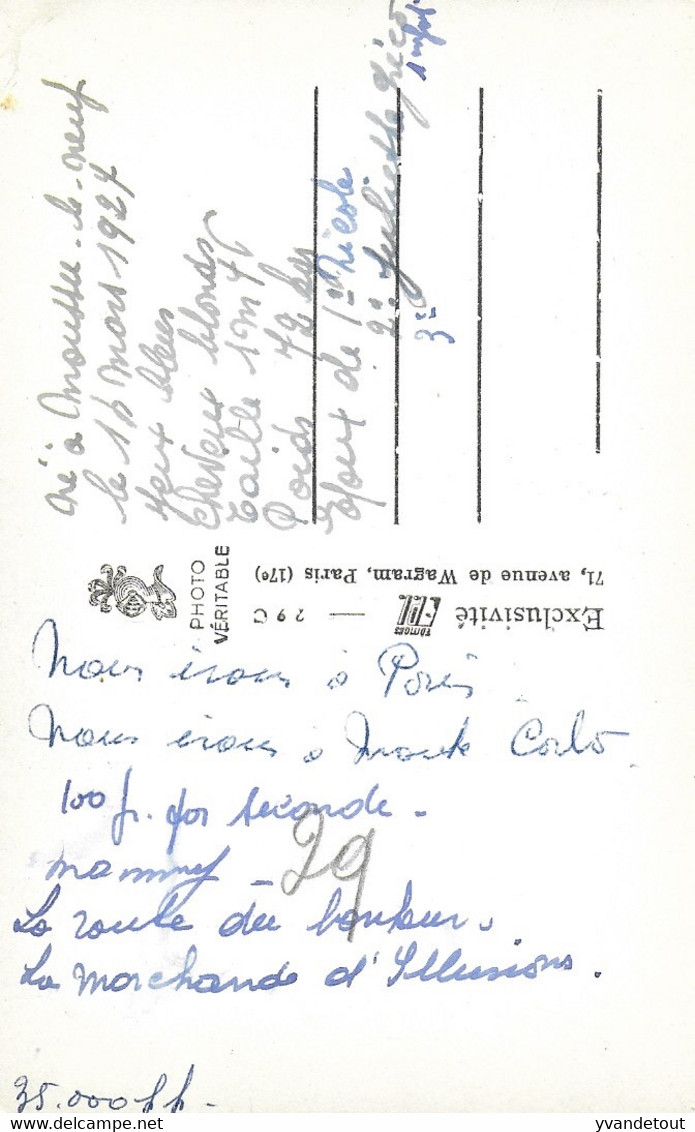 Né à Moussu-le-neuf
le 16 Mars 1927
Yeux bleus
Cheveux blonds
Taille 1m76
Poids 72 kgs
Epoux de 1º Nicole
2º Juliette Gréco
1 enfant
3º
PHOTO
VÉRITABLE
Exclusivité ÉDITIONS — 29 C
71, avenue de Wagram, Paris (17e)
Nous irons à Paris
Nous irons à Monte Carlo
100 fr. par seconde -
mammy -
29
La route du bonheur.
La Marchande d'Illusions.
35.000 ff -
yvandetout